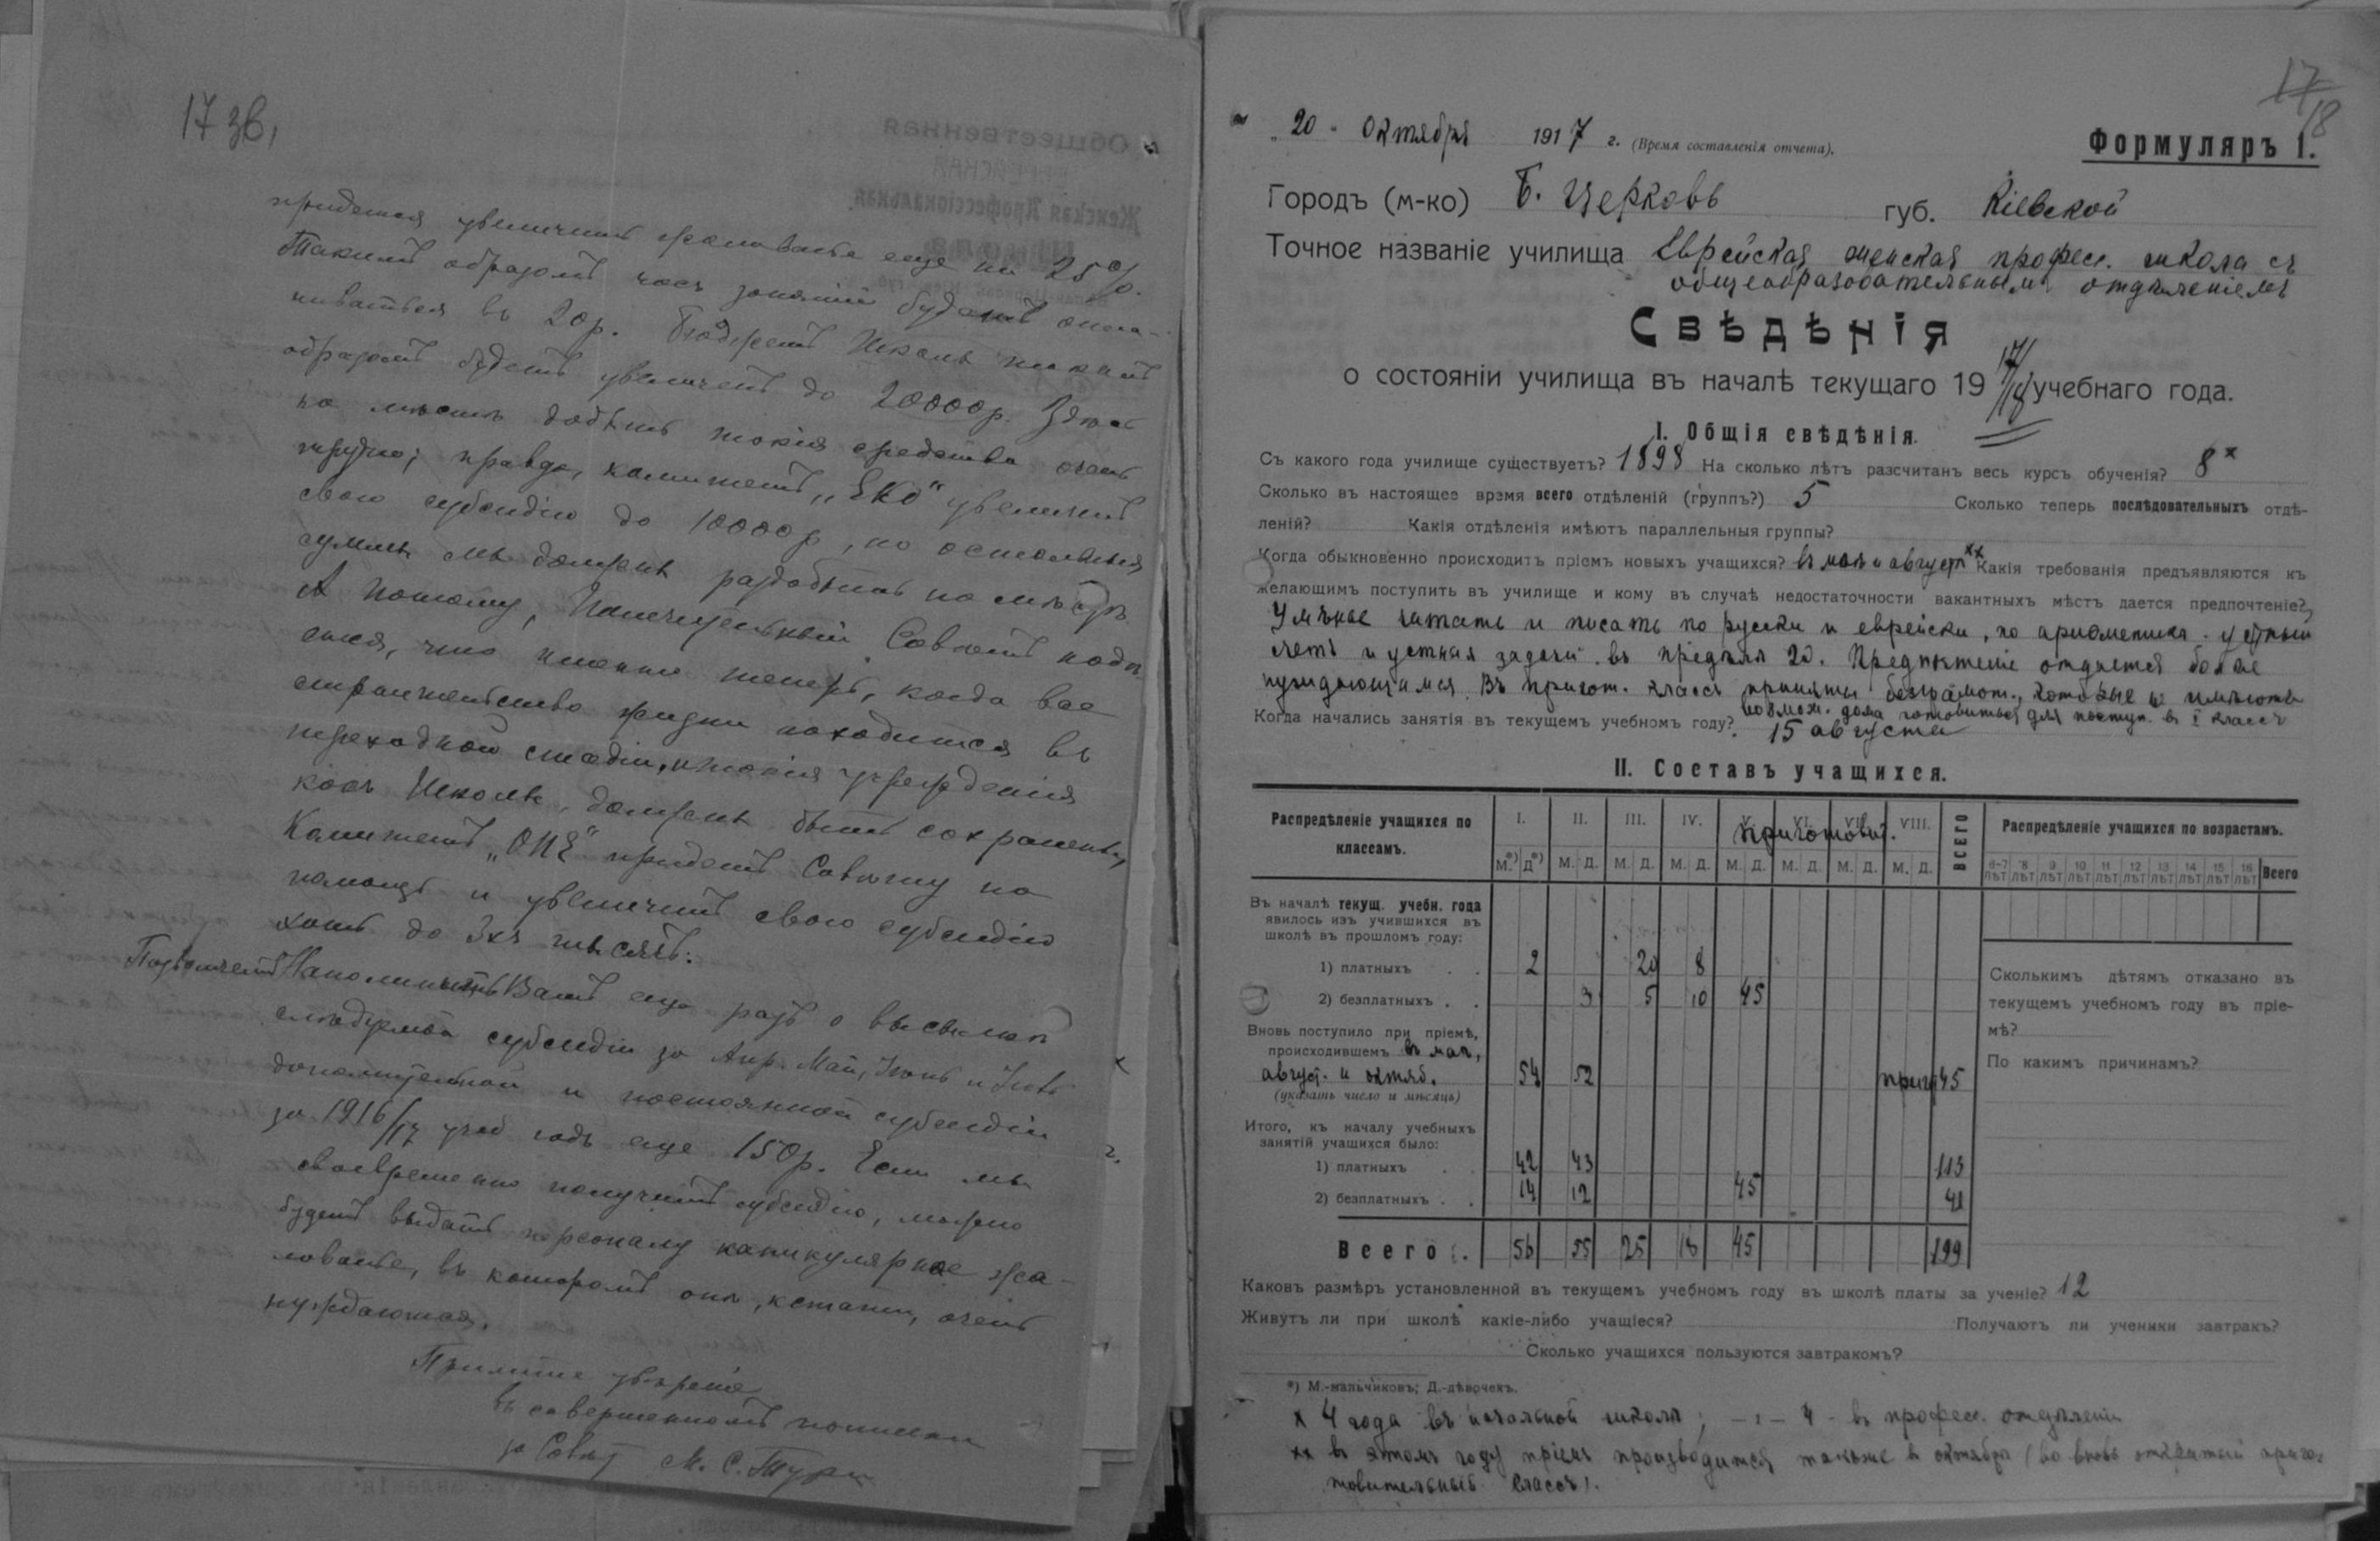 17 зв.
придется увеличить жалованье еще на 25%.
Такимъ образомъ часъ занятій будетъ опла-
чиваться въ 20р. Бюджетъ Школы такимъ
образомъ будетъ увеличенъ до 20000р. Здѣсь
на мѣстѣ добыть такія средства очень
трудно; правда, комитетъ „ЕКО“ увеличитъ
свою субсидію до 10000р, но остальныя
суммы мы должны раздобыть на мѣстѣ.
А потому, Попечительный Совѣтъ надѣ-
ется, что именно теперь, когда все
строительство жизни находится въ
переходной стадіи, и такія учрежденія
какъ Школы, должны быть сохранены,
Комитетъ „ОПЕ“ придетъ Совѣту на
помощь и увеличитъ свою субсидію
хоть до 3хъ тысячъ.
Позволяемъ Напомнить Вамъ еще разъ о высылкѣ
слѣдуемой субсидіи за Апр. Май, Іюнь и Іюль
дополнительной и постоянной субсидіи
за 1916/17 учеб годъ еще 150р. Если мы
своевременно получимъ субсидію, можно
будетъ выдать персоналу каникулярное жа-
лованье, въ которомъ они, кстати, очень
нуждаются.
Примите увѣреніе
въ совершенномъ почтеніи
за Совѣтъ М. С. Турк
17
18
„20“ Октября 1917 г. (Время составленія отчета).
Формуляръ 1.
Городъ (м-ко) Б. Церковь губ. Кіевской
Точное названіе училища Еврейская женская професс. школа съ
общеобразовательнымъ отдѣленіемъ
Свѣдѣнія
о состояніи училища въ началѣ текущаго 1917/18 учебнаго года.
I. Общія свѣдѣнія.
Съ какого года училище существуетъ? 1898 На сколько лѣтъ разсчитанъ весь курсъ обученія? 8 x
Сколько въ настоящее время всего отдѣленій (группъ?) 5 Сколько теперь послѣдовательныхъ отдѣ-
леній? Какія отдѣленія имѣютъ параллельныя группы?
Когда обыкновенно происходитъ пріемъ новыхъ учащихся? въ маѣ и августѣ xx Какія требованія предъявляются къ
желающимъ поступить въ училище и кому въ случаѣ недостаточности вакантныхъ мѣстъ дается предпочтеніе?
Умѣнье читать и писать по русски и еврейски, по ариѳметикѣ - устный
счетъ и устныя задачи въ предѣлѣ 20. Предпочтеніе отдается болѣе
нуждающимся. Въ пригот. классъ приняты безграмот., которые не имѣютъ
возмож. дома готовиться для поступ. в I классъ
Когда начались занятія въ текущемъ учебномъ году? 15 августа
II. Составъ учащихся.
Распредѣленіе учащихся по классамъ. I. II. III. IV. V. VI. VII. VIII. ВСЕГО Распредѣленіе учащихся по возрастамъ.
приготовит.
М.*) Д*) М. Д. М. Д. М. Д. М. Д. М. Д. М. Д. М. Д.
6-7 лѣт 8 лѣт 9 лѣт 10 лѣт 11 лѣт 12 лѣт 13 лѣт 14 лѣт 15 лѣт 16 лѣт Всего
Въ началѣ текущ. учебн. года
явилось изъ учившихся въ
школѣ въ прошломъ году:
1) платныхъ 2 20 8
2) безплатныхъ 3 5 10 45
Вновь поступило при пріемѣ,
происходившемъ въ маѣ,
август. и октяб. 54 52 приг. 45
(указать число и мѣсяцъ)
Итого, къ началу учебныхъ
занятій учащихся было:
1) платныхъ 42 43 113
2) безплатныхъ 14 12 45 41
Всего 56 55 25 18 45 199
Сколькимъ дѣтямъ отказано въ
текущемъ учебномъ году въ пріе-
мѣ?
По какимъ причинамъ?
Каковъ размѣръ установленной въ текущемъ учебномъ году въ школѣ платы за ученіе? 12
Живутъ ли при школѣ какіе-либо учащіеся? Получаютъ ли ученики завтракъ?
Сколько учащихся пользуются завтракомъ?
*) М.-мальчиковъ; Д.-дѣвочекъ.
x 4 года въ начальной школѣ; -„- 4 - въ професс. отдѣленіи
xx въ этомъ году пріемъ производится также в октябрѣ (во вновь открытый приго-
товительный классъ).